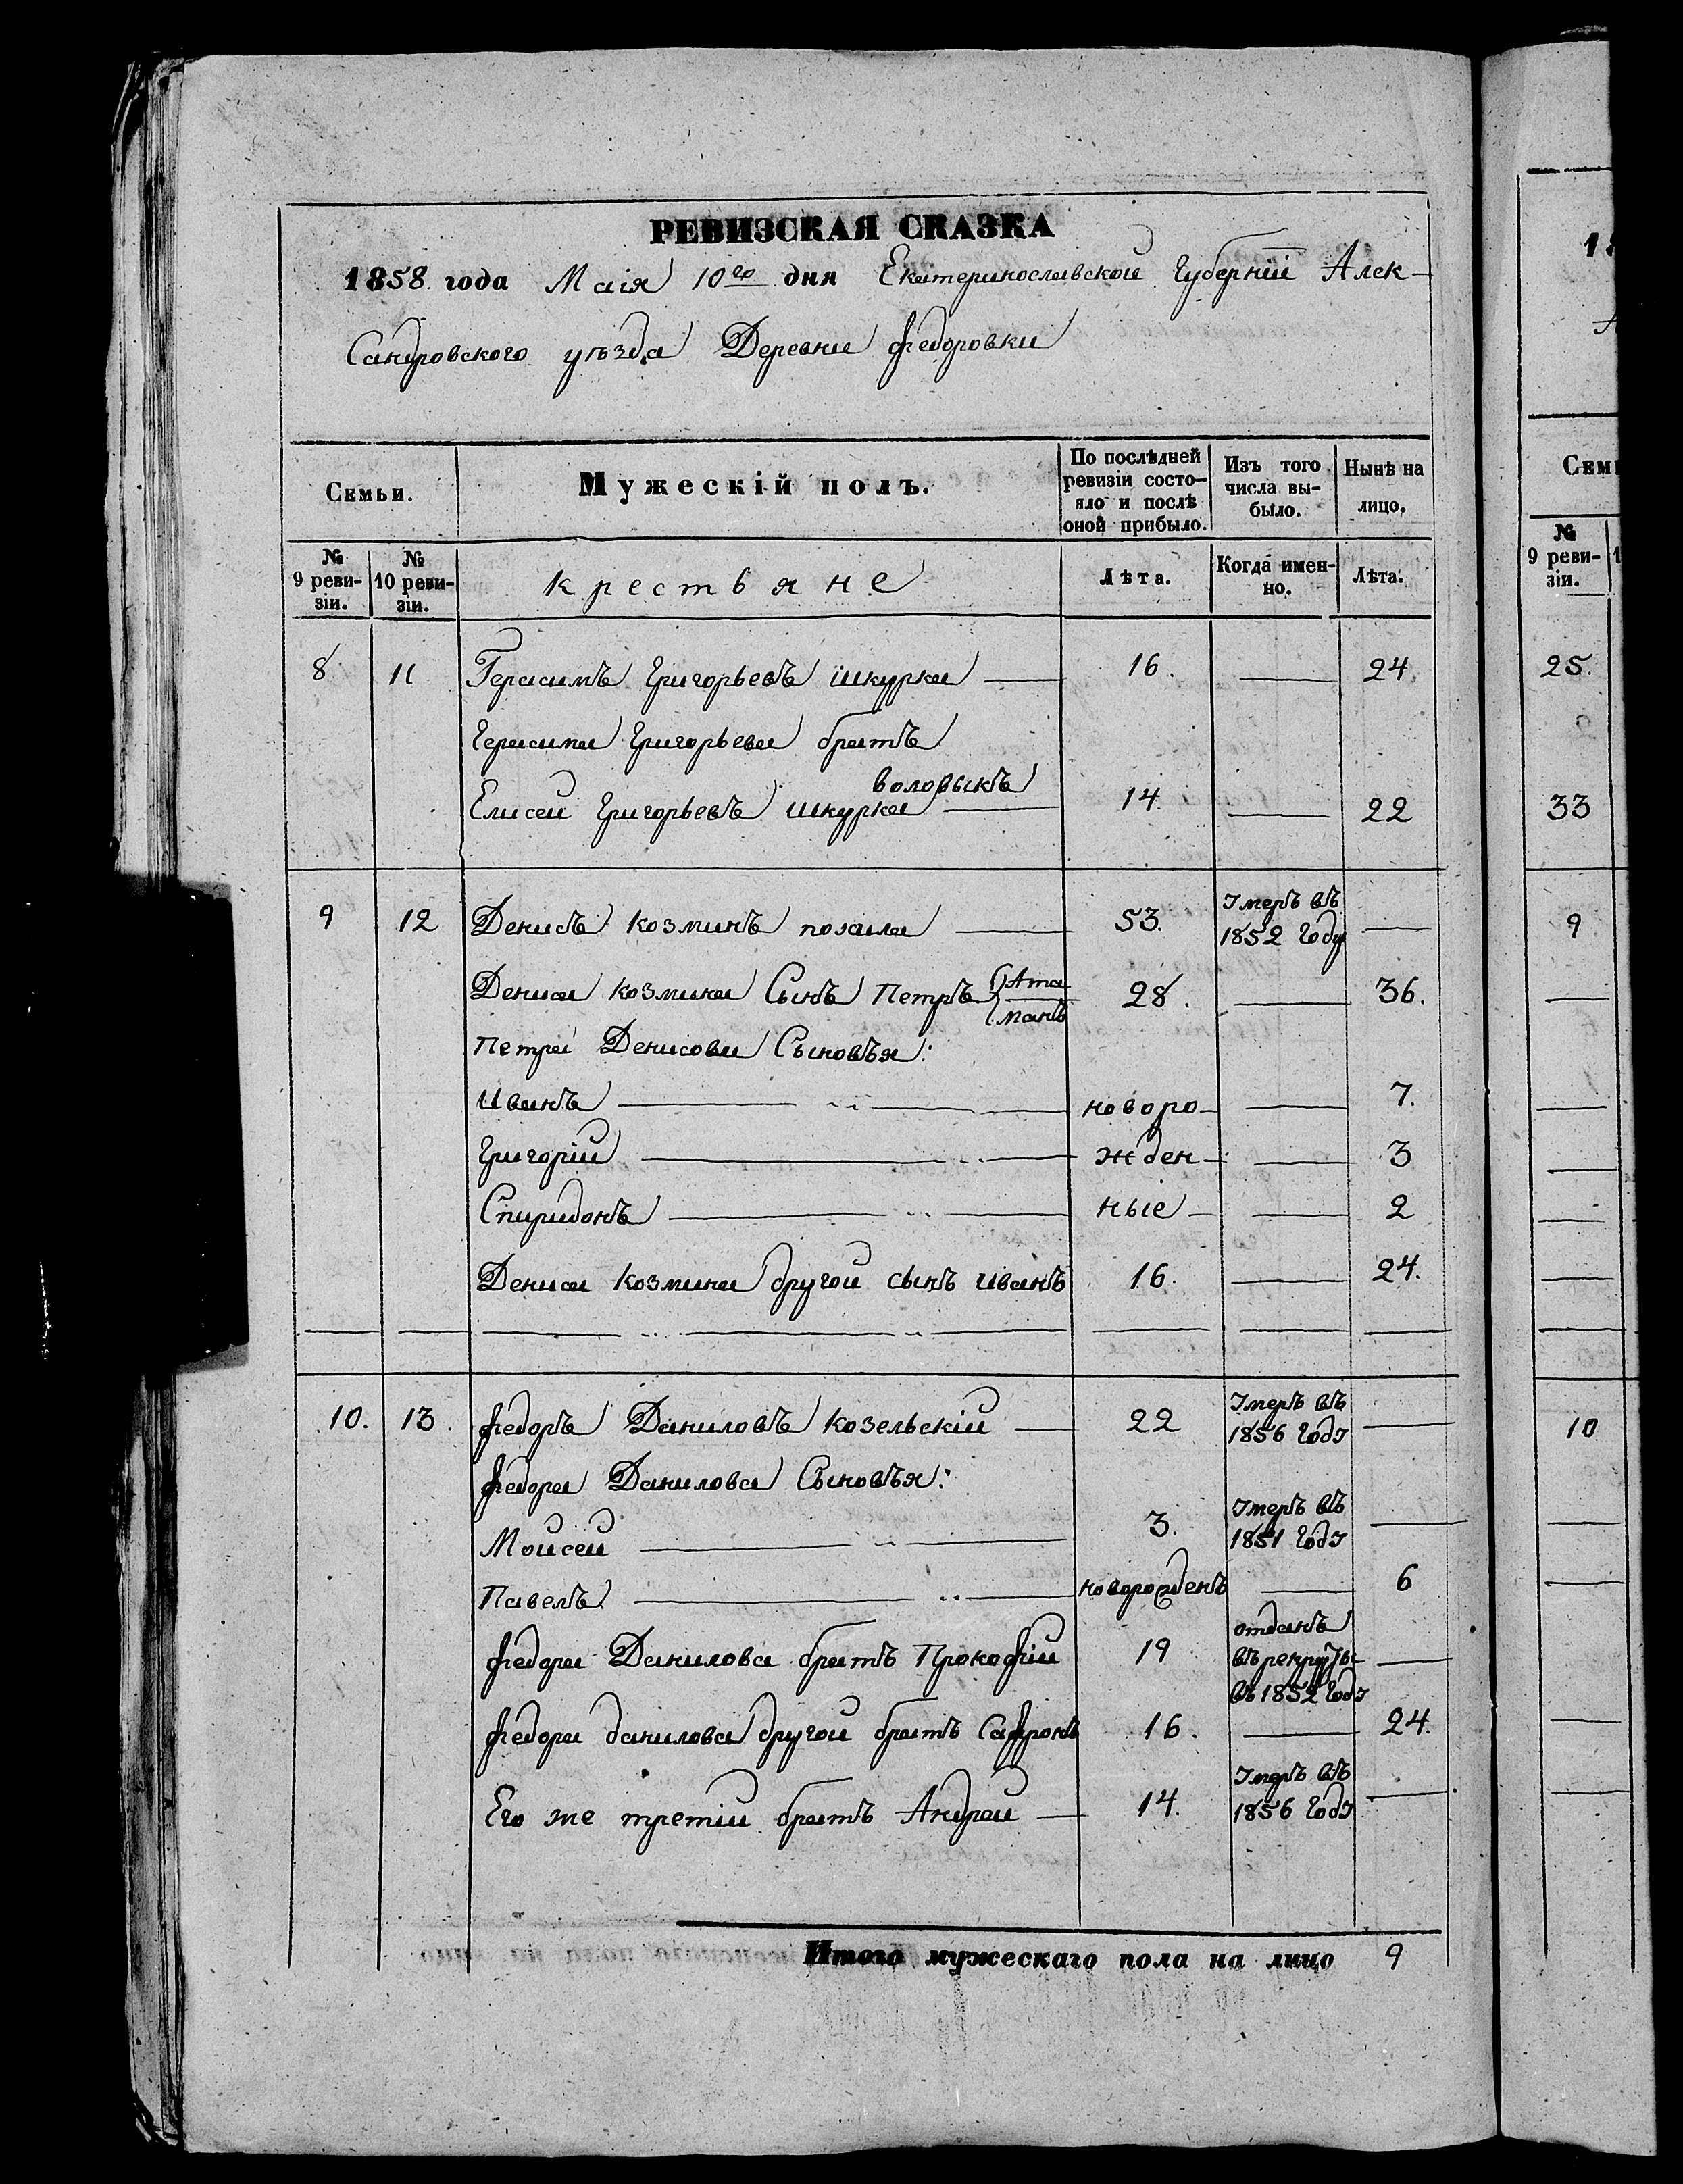 РЕВИЗСКАЯ СКАЗКА
1858 года Маія 10го дня Екатеринославской Губерніи Алек-
сандровского уѣзда Деревни Федоровки
Семьи.
Мужескій полъ.
По послѣдней ревизіи состо-
яло и послѣ оной прибыло.
Изъ того числа вы-
было.
Нынѣ на лицо.
№ 9 реви-
зіи.
№ 10 реви-
зіи.
крестьяне
Лѣта.
Когда имен-
но.
Лѣта.
8 11 Герасимъ Григорьевъ шкурка 16. 24
Герасима Григорьева братъ
воловыкъ
Елисей Григорьевъ шкурка 14. 22
9 12 Денисъ козминъ похила 53. Умеръ въ 1852 Году
Дениса козмина Сынъ Петръ (Ата
манъ 28. 36.
Петра Денисова Сыновъя:
Иванъ новоро- 7.
Григорій жден- 3
Спиридонъ ные 2
Дениса козмина другой сынъ иванъ 16. 24.
10. 13. Федоръ Даниловъ козельскій 22 Умеръ въ 1856 Году
Федора Данилова Сыновъя:
Моисей 3. Умеръ въ 1851 Году
Павелъ новорожденъ 6
Федора Данилова братъ Прокофій 19 отданъ въ рекруты въ 1852 Году
Федора данилова другой братъ Сафронъ 16. 24.
Его же третій братъ Андрей 14. Умеръ въ 1856 Году
Итого мужескаго пола на лицо 9
18
Семь
№ 9 реви-
зіи.
25.
33
9
10